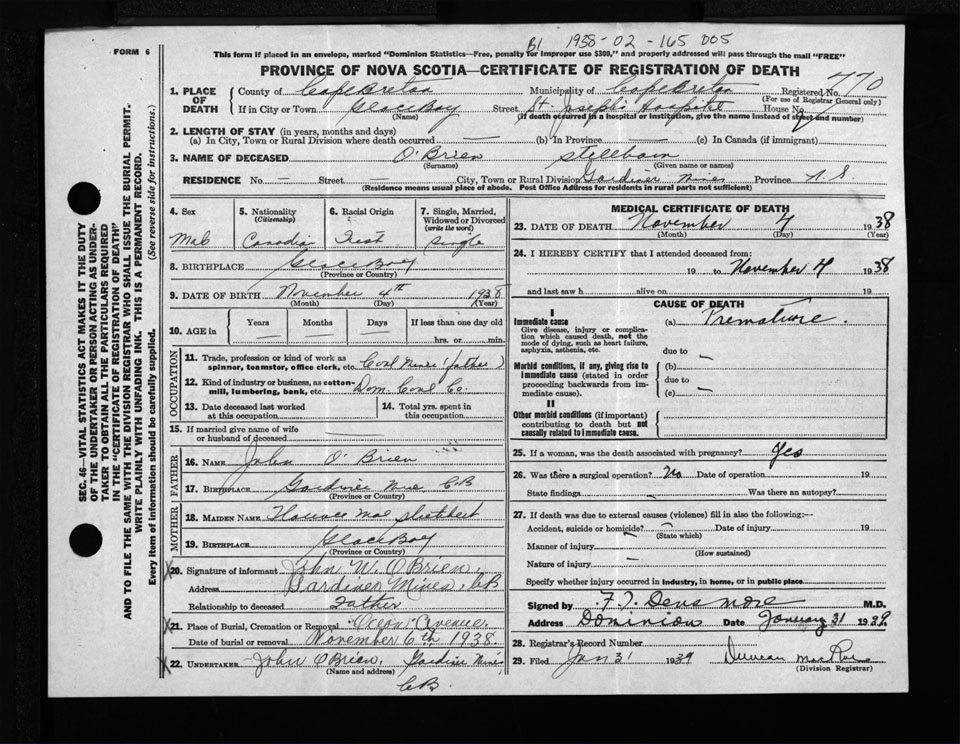 B1 1938-02-165 005
FORM 6
This form if placed in an envelope, marked "Dominion Statistics—Free, penalty for improper use $300," and properly addressed will pass through the mail "FREE"
PROVINCE OF NOVA SCOTIA—CERTIFICATE OF REGISTRATION OF DEATH
SEC. 46—VITAL STATISTICS ACT MAKES IT THE DUTY
OF THE UNDERTAKER OR PERSON ACTING AS UNDER-
TAKER TO OBTAIN ALL THE PARTICULARS REQUIRED
IN THE "CERTIFICATE OF REGISTRATION OF DEATH"
AND TO FILE THE SAME WITH THE DIVISION REGISTRAR WHO SHALL ISSUE THE BURIAL PERMIT.
WRITE PLAINLY WITH UNFADING INK. THIS IS A PERMANENT RECORD.
Every item of information should be carefully supplied. (See reverse side for instructions.)
1. PLACE OF DEATH County of Cape Breton Municipality of Cape Breton Registered No. 770
(For use of Registrar General only)
If in City or Town Glace Bay Street St. Joseph's Hospital House No.
(Name) (If death occurred in a hospital or institution, give the name instead of street and number)
2. LENGTH OF STAY (in years, months and days)
(a) In City, Town or Rural Division where death occurred — (b) In Province — (c) In Canada (if immigrant)
3. NAME OF DECEASED O'Brien Stillborn
(Surname) (Given name or names)
RESIDENCE No. — Street — City, Town or Rural Division Gardiner Mines Province N.S.
(Residence means usual place of abode. Post Office Address for residents in rural parts not sufficient)
4. Sex 5. Nationality (Citizenship) 6. Racial Origin 7. Single, Married, Widowed or Divorced (write the word)
Male Canadian Irish Single
8. BIRTHPLACE Glace Bay
(Province or Country)
9. DATE OF BIRTH November 4th 1938
(Month) (Day) (Year)
10. AGE in Years Months Days If less than one day old
— — — hrs. or min.
OCCUPATION
11. Trade, profession or kind of work as spinner, teamster, office clerk, etc. Coal Miner (father)
12. Kind of industry or business, as cotton-mill, lumbering, bank, etc. Dom. Coal Co.
13. Date deceased last worked at this occupation 14. Total yrs. spent in this occupation
15. If married give name of wife or husband of deceased —
FATHER
16. NAME John O'Brien
17. BIRTHPLACE Gardiner Mine CB
(Province or Country)
MOTHER
18. MAIDEN NAME Florence Mae
19. BIRTHPLACE Glace Bay
(Province or Country)
20. Signature of informant John W. O'Brien,
Address Gardiner Mines, CB
Relationship to deceased Father
21. Place of Burial, Cremation or Removal "Ocean" Avenue.
Date of burial or removal November 6th, 1938.
22. UNDERTAKER John O'Brien, Gardiner Mines
(Name and address)
CB.
MEDICAL CERTIFICATE OF DEATH
23. DATE OF DEATH November 4 1938
(Month) (Day) (Year)
24. I HEREBY CERTIFY that I attended deceased from:
19 to November 4 1938
and last saw h alive on 19
CAUSE OF DEATH
I
Immediate cause (a) Premature.
Give disease, injury or complication which caused death, not the mode of dying, such as heart failure, asphyxia, asthenia, etc.
due to —
Morbid conditions, if any, giving rise to immediate cause (stated in order proceeding backwards from immediate cause).
(b)
due to —
(c)
II
Other morbid conditions (if important) contributing to death but not causally related to immediate cause.
25. If a woman, was the death associated with pregnancy? Yes
26. Was there a surgical operation? No Date of operation 19
State findings Was there an autopsy?
27. If death was due to external causes (violence) fill in also the following:—
Accident, suicide or homicide? — Date of injury 19
(State which)
Manner of injury
(How sustained)
Nature of injury —
Specify whether injury occurred in industry, in home, or in public place
Signed by F. J. Densmore M.D.
Address Dominion Date January 31 1939.
28. Registrar's Record Number
29. Filed Jan 31 1939 Duncan MacRae
(Division Registrar)